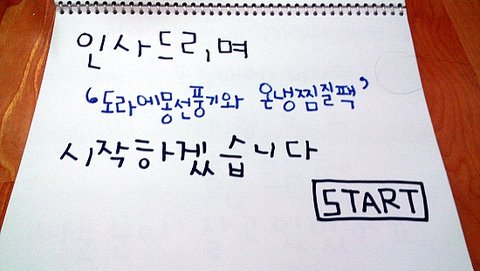 인사드리며
'도라에몽선풍기와 온냉찜질팩'
시작하겠습니다
START